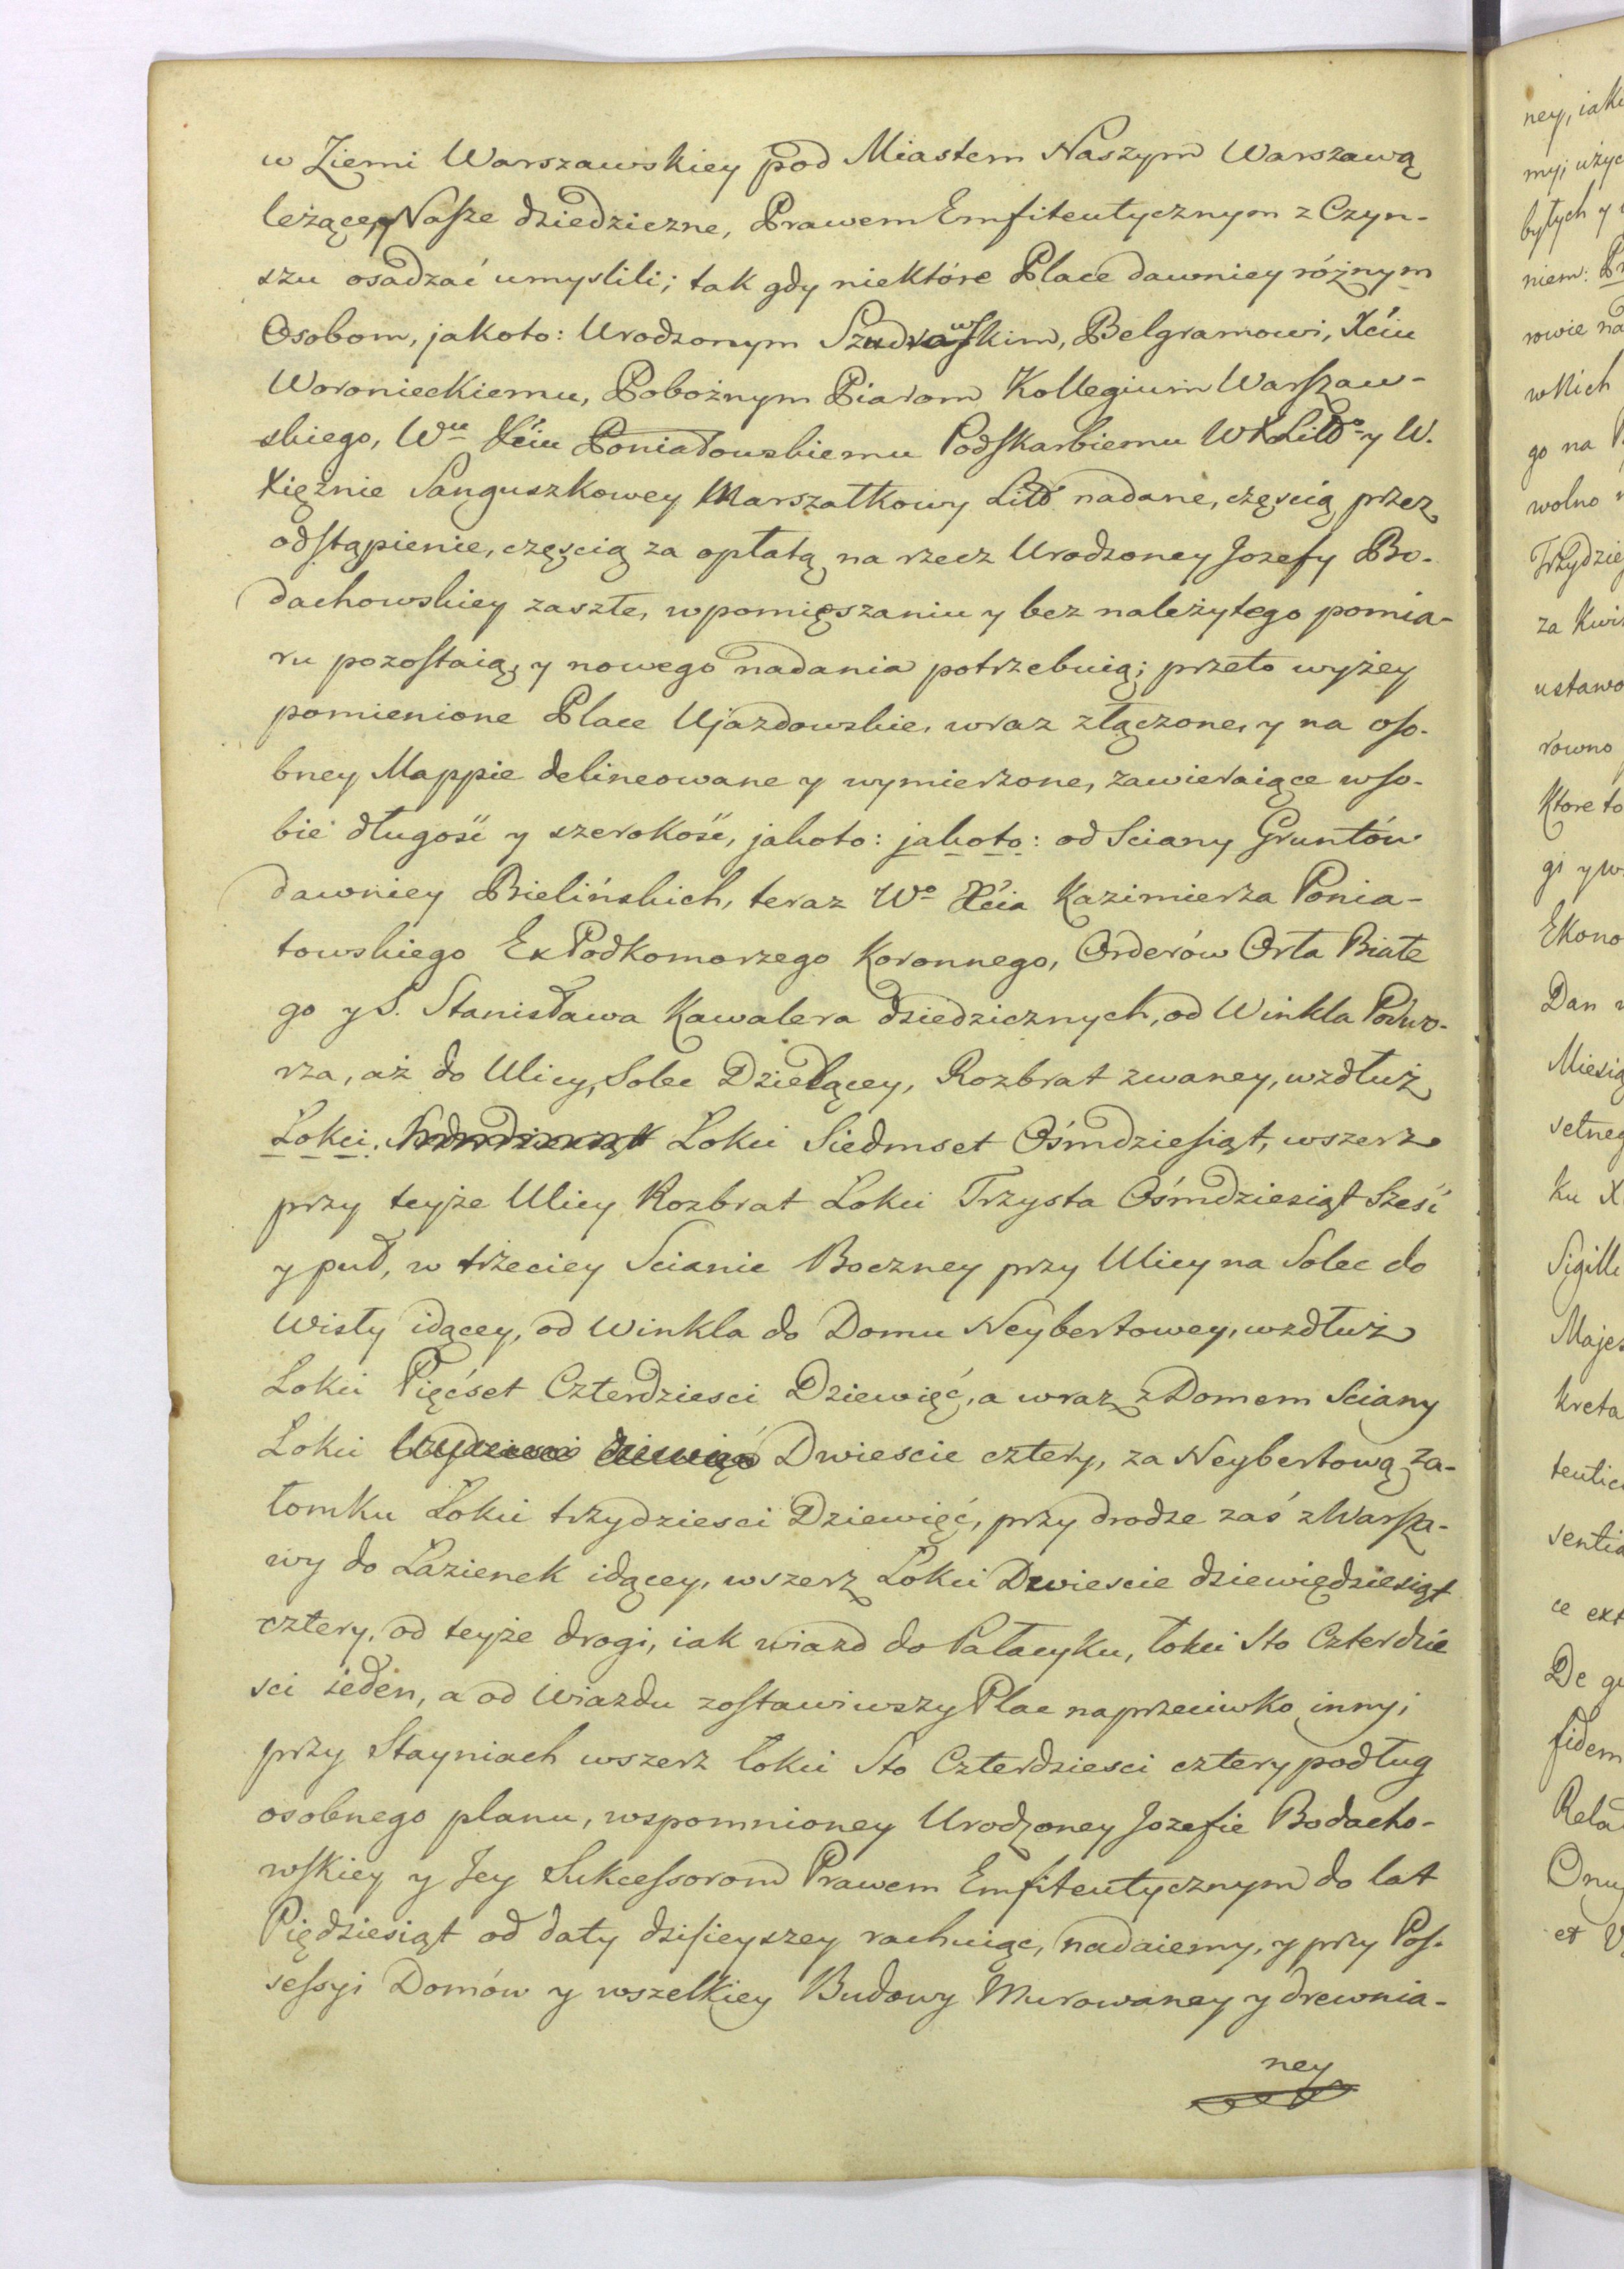 w Ziemi Warszawskiey pod Miastem Naszym Warszawą
leżące, y Nasze dziedziczne, Prawem Emfiteutycznym z Czyn-
szu osadzać umyslili; tak gdy niektóre Place dawniey różnym
Osobom, jakoto: Urodzonym Belgramowi, Xciu
Woronieckiemu, Pobożnym Piarom Kollegium Warszaw-
skiego, Wu Xciu Poniatowskiemu Podskarbiemu WXLitt° y W.
Xiężnie Sanguszkowey Marszałkowy Litt nadane, częscią przez
odstąpienie, częscią za opłatą na rzecz Urodzoney Jozefy Bo-
dachowskiey zaszłe, w pomięszaniu y bez należytego pomia-
ru pozostaią, y nowego nadania potrzebuią; przeto wyżey
pomienione Place Ujazdowskie, wraz złączone, y na oso-
bney Mappie delineowane y wymierzone, zawieraiące w so-
bie długość y szerokość, jakoto: jakoto: od Sciany Gruntów
dawniey Bielińskich, teraz W° Xcia Kazimierza Ponia-
towskiego ExPodkomorzego Koronnego, Orderów Orła Białe
go y S. Stanisława Kawalera dziedzicznych, od Winkla Podwo-
rza, aż do Ulicy, Solec Dzielącey, Rozbrat zwaney, wzdłuż
Lokci. Lokci Siedmset Ośmdziesiąt, wszerz
przy teyże Ulicy Rozbrat Lokci Trzysta Ośmdziesiąt Sześć
y puł, w trzeciey Scianie Boczney przy Ulicy na Solec do
Wisły idącey, od Winkla do Domu Neybertowey, wzdłuż
Lokci Pięćset Czterdziesci Dziewięć, a wraz z Domem Sciany
Lokci Dwiescie cztery, za Neybertową za-
łomku Lokci trzydziesci Dziewięć, przy drodze zaś z Warsza-
wy do Łazienek idącey, wszerz Lokci Dwiescie dziewiędziesiąt
cztery, od teyże drogi, iak wiazd do Pałacyku, łokci Sto Czterdzie
sci ieden, a od Wiazdu zostawiwszy Plac naprzeciwko inny;
przy Stayniach wszerz łokci Sto Czterdziesci cztery podług
osobnego planu, wspomnioney Urodzoney Jozefie Bodacho-
wskiey y Jey Sukcessorom Prawem Emfiteutycznym do lat
Piędziesiąt od daty dzisieyszey rachuiąc, nadaiemy, y przy Pos-
sessyi Domów y wszelkiey Budowy Murowaney y drewnia-
ney